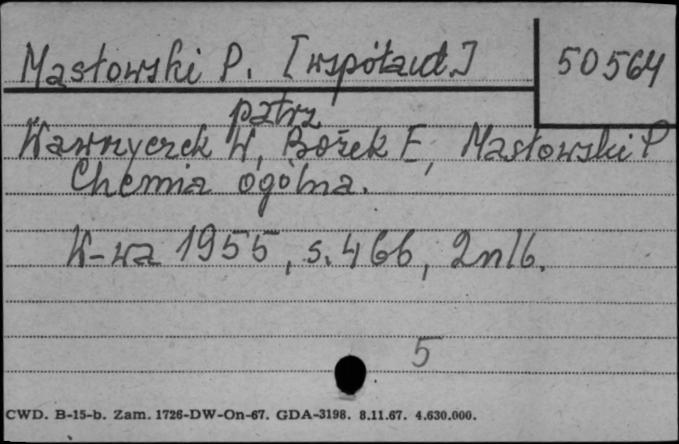 Masłowski P. [współaut.]
50564
patrz
Wawrzyczek W, Bořek E, Masłowski P
Chemia ogólna.
W-wa 1955, s. 466, 2nlb.
5
CWD. B-15-b. Zam. 1726-DW-On-67. GDA-3198. 8.11.67. 4.630.000.